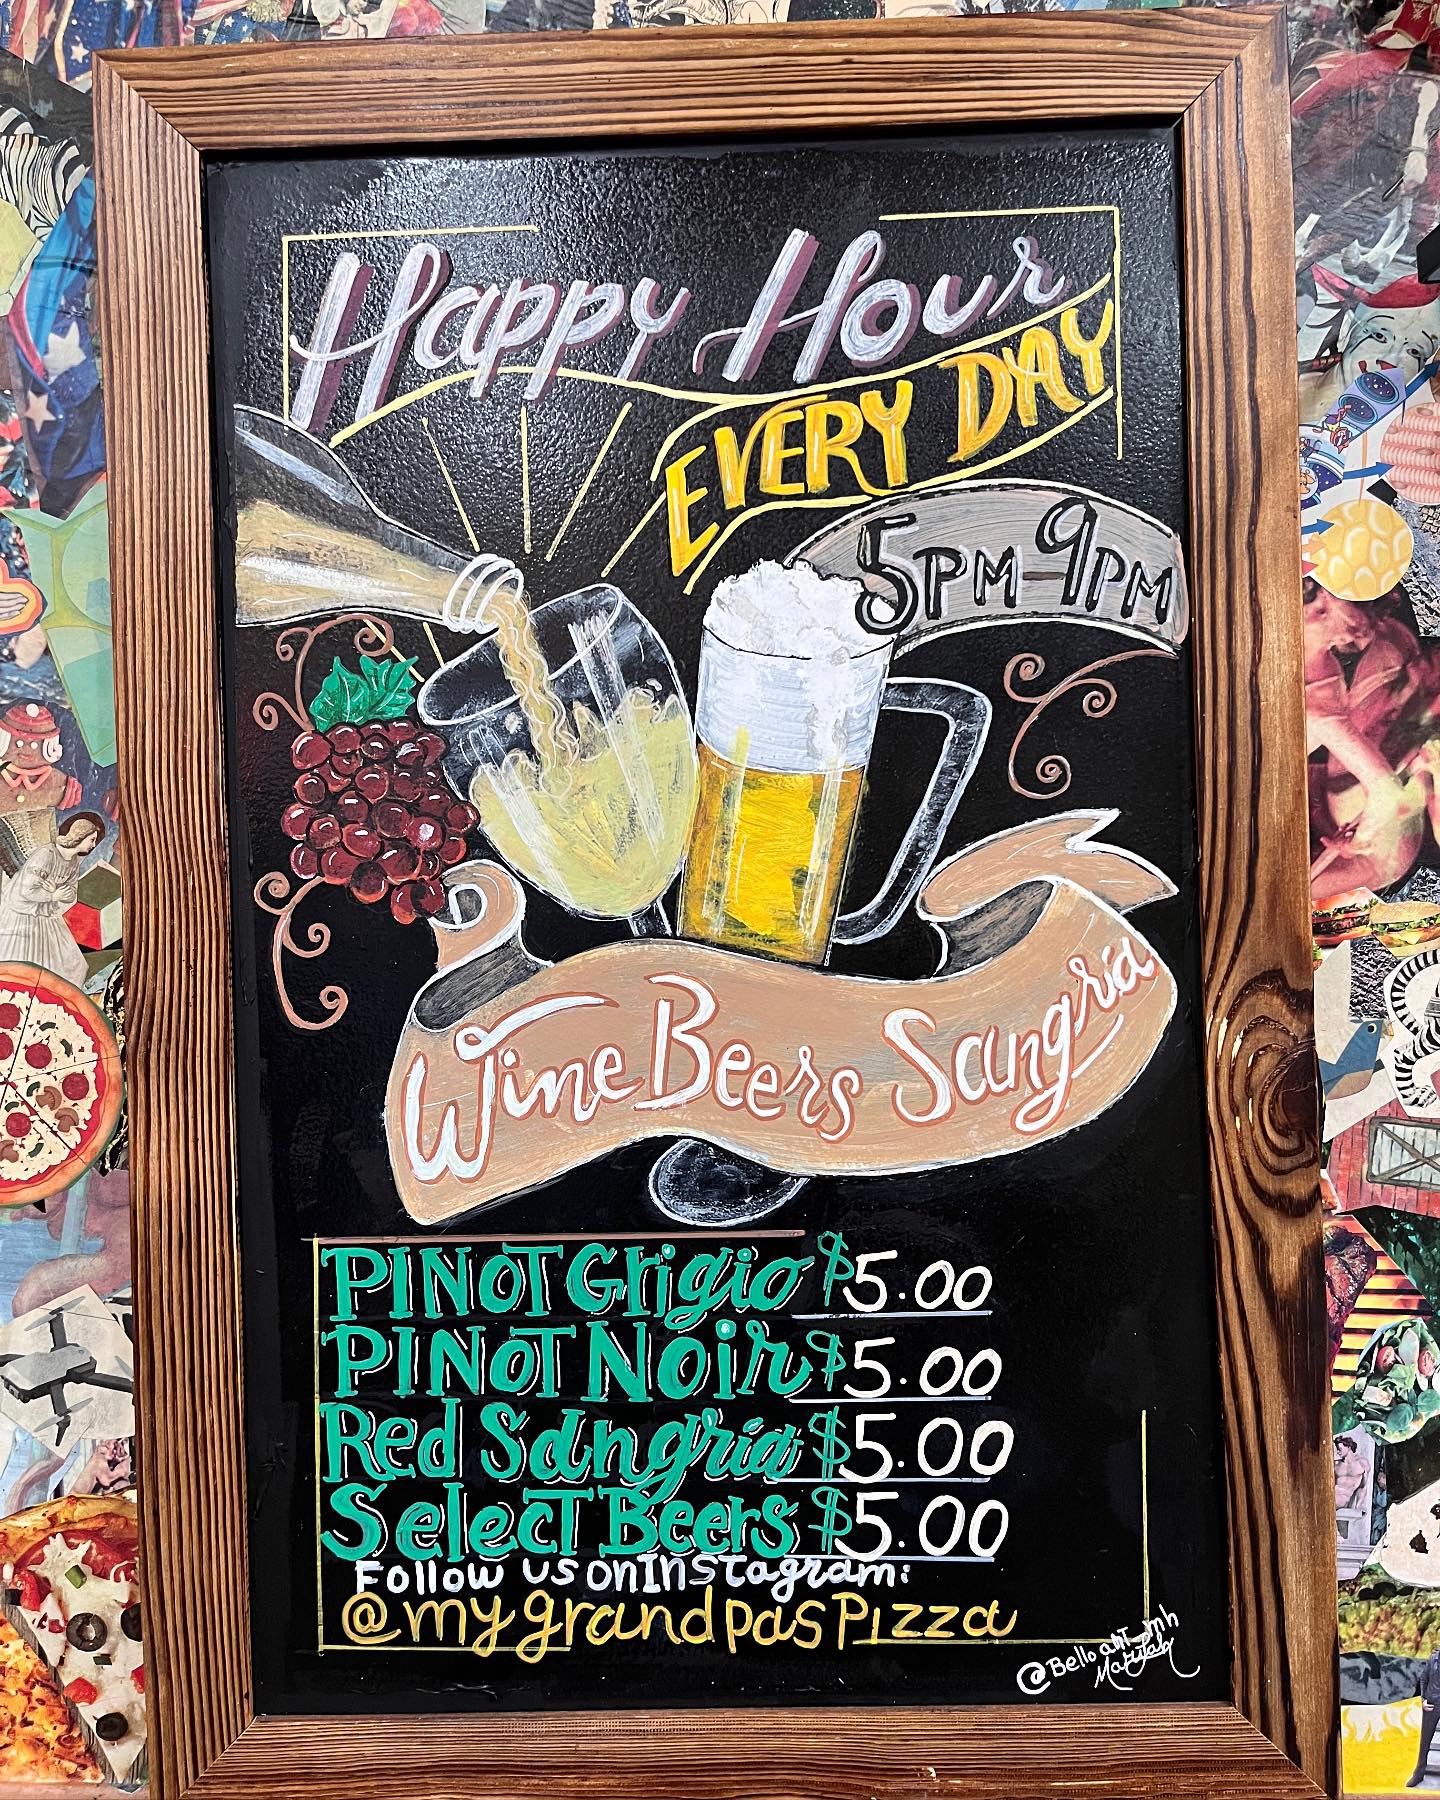 Happy Hour
EVERY DAY
5PM-9PM
Wine Beers Sangria
PINOT Grigio $5.00
PINOT Noir $5.00
Red Sangria $5.00
Select Beers $5.00
Follow us on INSTagram:
@mygrandpasPizza
@Bello art_mh